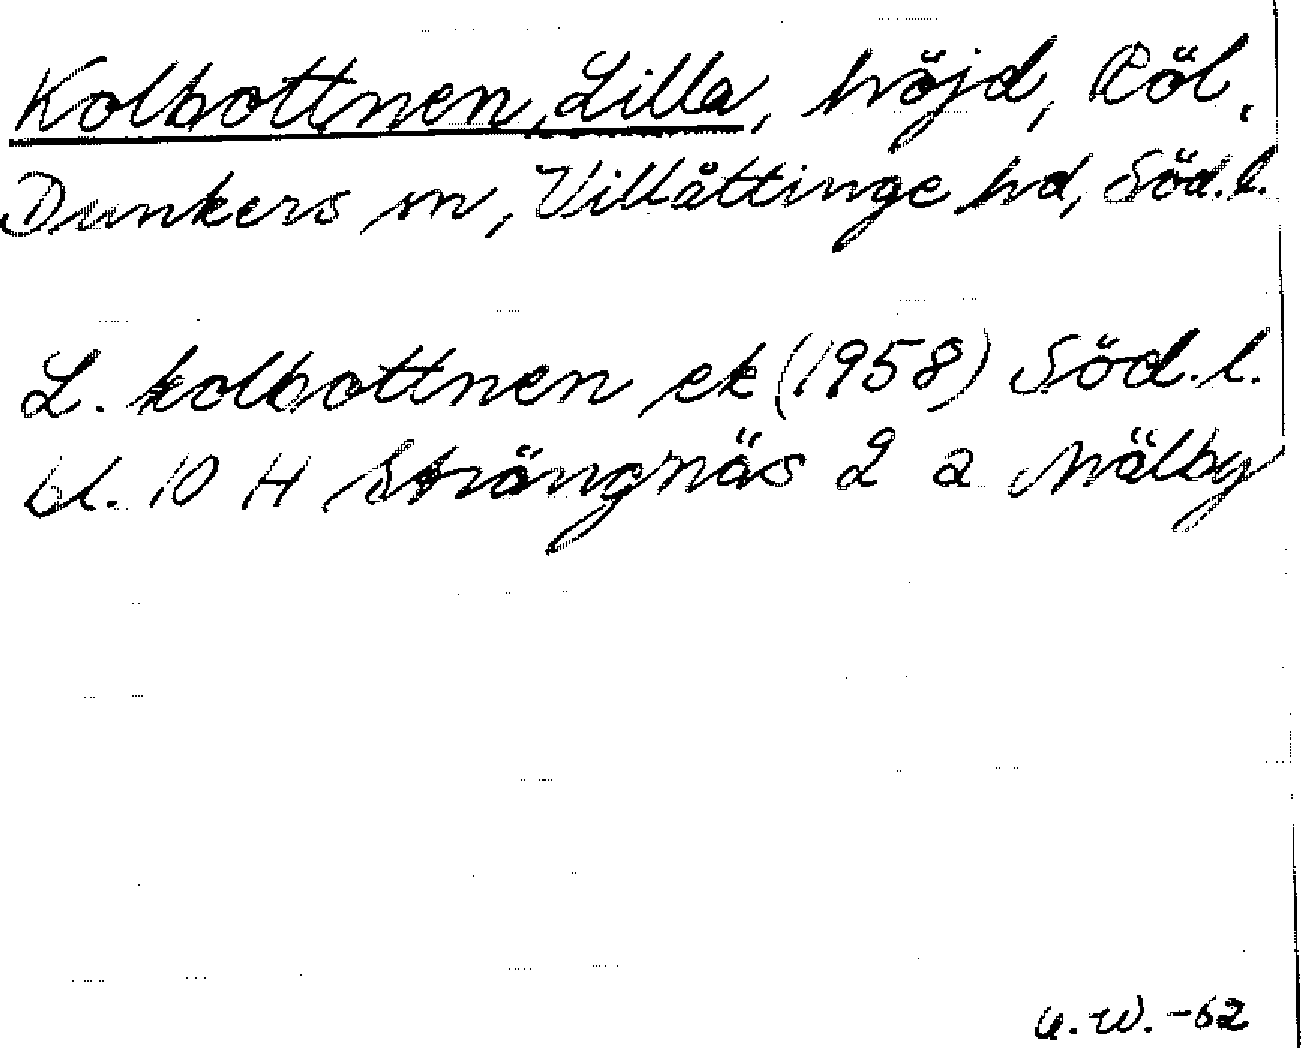 Kolbottnen, Lilla, höjd, Röl,
Dunkers sn, Villåttinge hd, Söd.l.
L. kolbottnen ek (1958) Söd.l.
bl. 10 H Strängnäs 2 a Mälby
U.W. -62